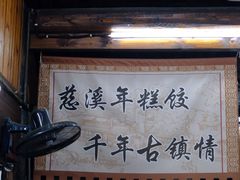 慈溪年糕饺
千年古镇情